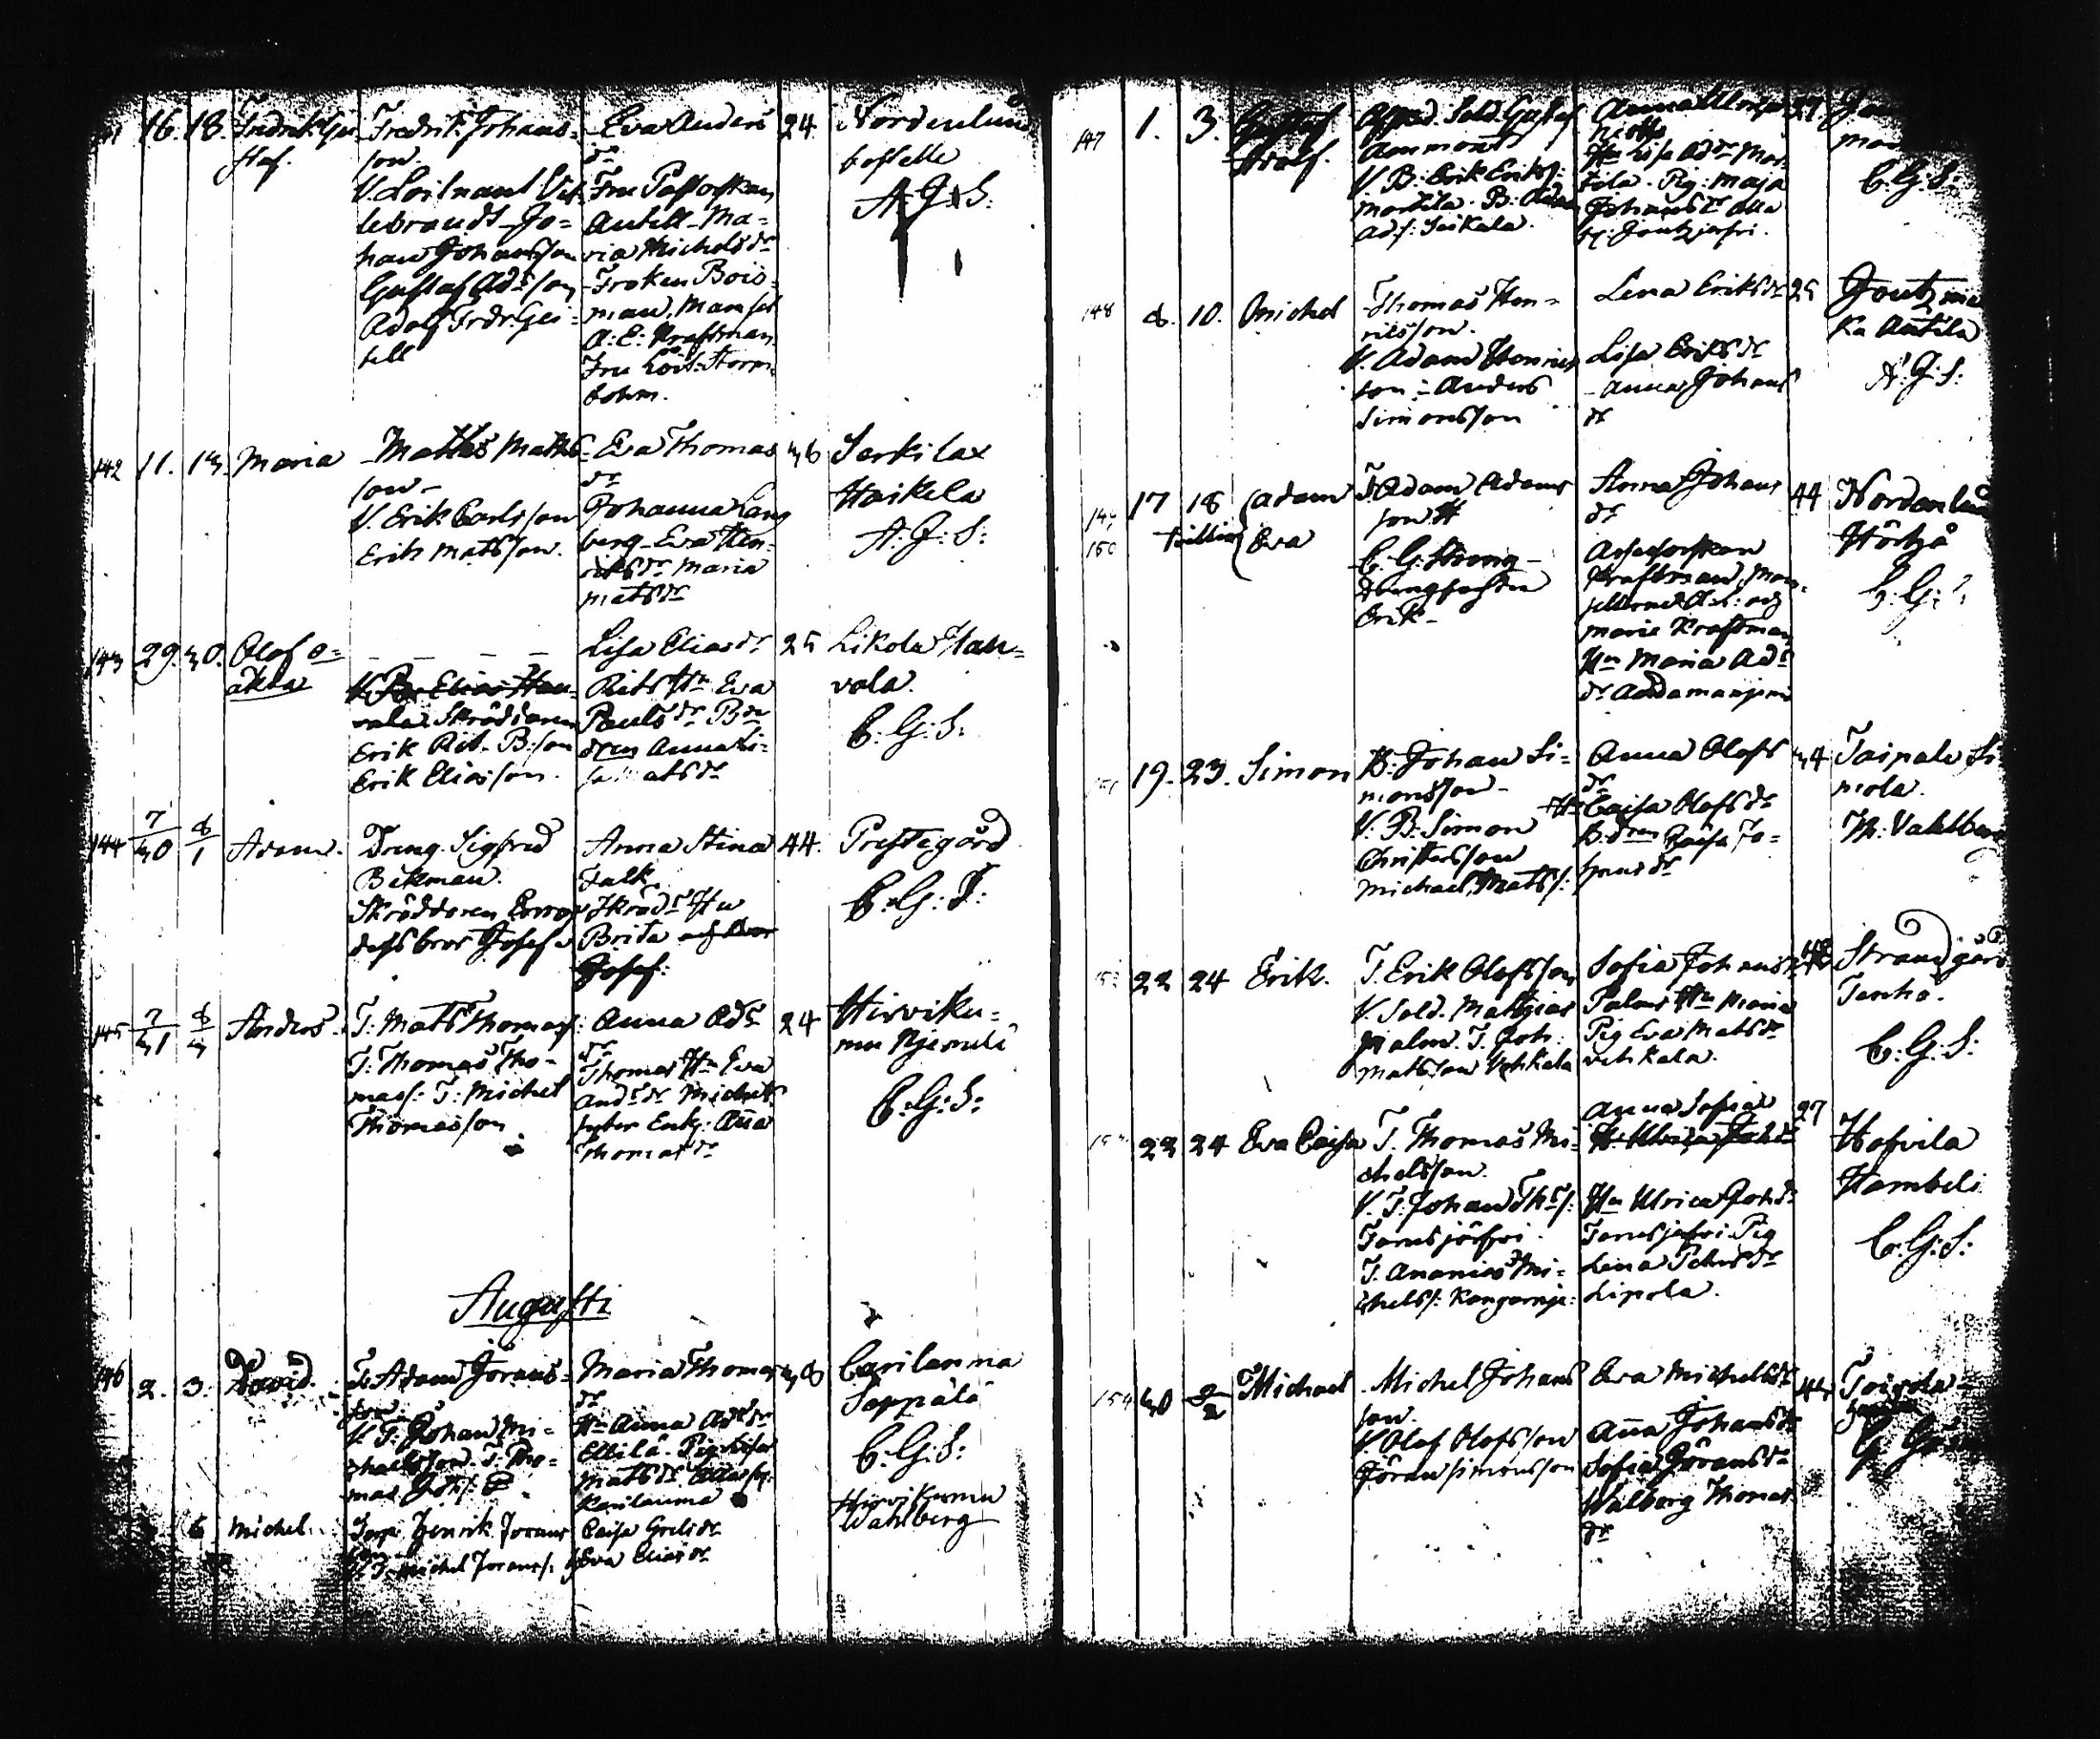 16. 18. Fredrik Gu=
staf.
Fredrik Johans=
son.
V. Loitnant Vil=
lebrandt Jo=
han Johansson
Gustaf Ads son
Adolf Frdr. Gei=
tell
Eva Anders
dr
Fru Pastorskan
Antell Ma=
ria Michelsdr
Fröken Bois=
man, Mamsel
A. E. Kraftman
Fru Storm
bohm.
24.
Nordenlund
bostelle
A. G. S.
142 11. 13. Maria
Matths Matts=
son
V. Erik Carlsson
Erik Matsson.
Eva Thomas
dr
Johanna Lang
berg Eva Hen=
riksdr Maria
Matsdr
36
Serkilax
Haikela
A. G. S:
143 29. 30. Olof o=
äkta
Elias Han=
vala Skräddaren
Erik Rit. B:son
Erik Eliasson.
Lisa Eliasdr
Rits Hu Eva
Paulsdr Bde
dren Anna Li=
sa Matsdr
25
Likola Han=
vala.
C. G. S.
144 7/30 8/1 Adam.
Dreng Sigfred
Bekman.
Skräddaren
dessbror Josef
Anna Stina
Falk
Skrädr Hu
Brita
Josef:
44.
Prestegård
C. G. S:
145 7/31 8/3 Anders.
T: Mats Thomass:
T: Thomas Tho=
mass: T: Michel
Thomasson
Anna Adr
dr
Thomas Hu Eva
Andr dr Michels
Enk: Aña
Thomasdr
24
Hirviku=
mu
C. G. S:
Augusti
146 2. 3. David.
T. Adam Jörans=
son.
V. T: Johan Mi=
chaelsson T. Tho=
mas Joh s:
Maria Thomas
dr
Hu Anna Adr dr
Ellilä. Pig. Lisa
Matsdr
Karilanma
38
Carilanma
Seppälä
C. G. S:
6 Michel.
Torp. Henrik Jorans
son
V. T. Michel Jorans s:
Caisa Grelsdr
Eva Eliasdr
Hirvikumu
Wahlberg
147 1. 3. Gustaf
Adolf.
Afsked. Sold. Gustaf
Ammont
V. B: Erik Eriks s:
Martila. B: Adam
Ad s: Seikala.
Anna Ulrica
Hu Lisa Ad dr Mar
tila. Pig: Maja
Johansdr
Joutzjerfvi.
27
C. G. S:
148 8. 10. Michel
Thomas Hen=
riksson.
V. Adam Henrics
son - Anders
Simonsson
Lena Eriksdr
Lisa Eriksdr
Anna Johans
dr
25
Joutzma
Ka Antila
A. G. S:
149
150
17 18
tvilling
Adam
Eva
T Adam Adams
son
C. G. Strong
Erik
Anna Johans
dr
Assessorskan
Kraftman, Mam=
sellerne A. L: och
Marie Kraftman
Hu Maria Ad
dr
44
Nordenlund
Hörkå
C. G. S
151 19. 23. Simon
B. Johan Si=
monsson
V. B: Simon
Christersson
Michael Mats s:
Anna Olofs
dr
Hu Caisa Olofsdr
B: dren Caisa Jo=
hansdr
34
Taipale Si
mola.
M. Vahlberg
152 22 24 Erik.
T. Erik Olofsson
V. Sold. Mathias
Palm. T. Joh:
Matsson Vehkala
Sofia Johansdr
Palms Hu Maria
Pig Eva Matsdr
Vehkala.
Strandgård
Tenho.
C. G. S:
153 22 24 Eva Caisa
T. Thomas Mi=
chelsson.
V. T. Johan Jkr s:
Tornsjärfvi.
T. Ananias Mi=
chels s: Kangarnje:
Anna Sofia
Hu Ulrica Johdr
Hu Ulrica Johdr
Tornsjerfvi. Pig
Lena Petersdr
Lipola.
27
Hofvila
Hambeli
C. G. S:
154 30 9/2 Michael
Michel Johans
son.
V. Olof Olofsson
Göran Simonsson
Eva Michelsdr
Aña Johansdr
Sofia Göransdr
Walborg Thomas
dr
Toivola